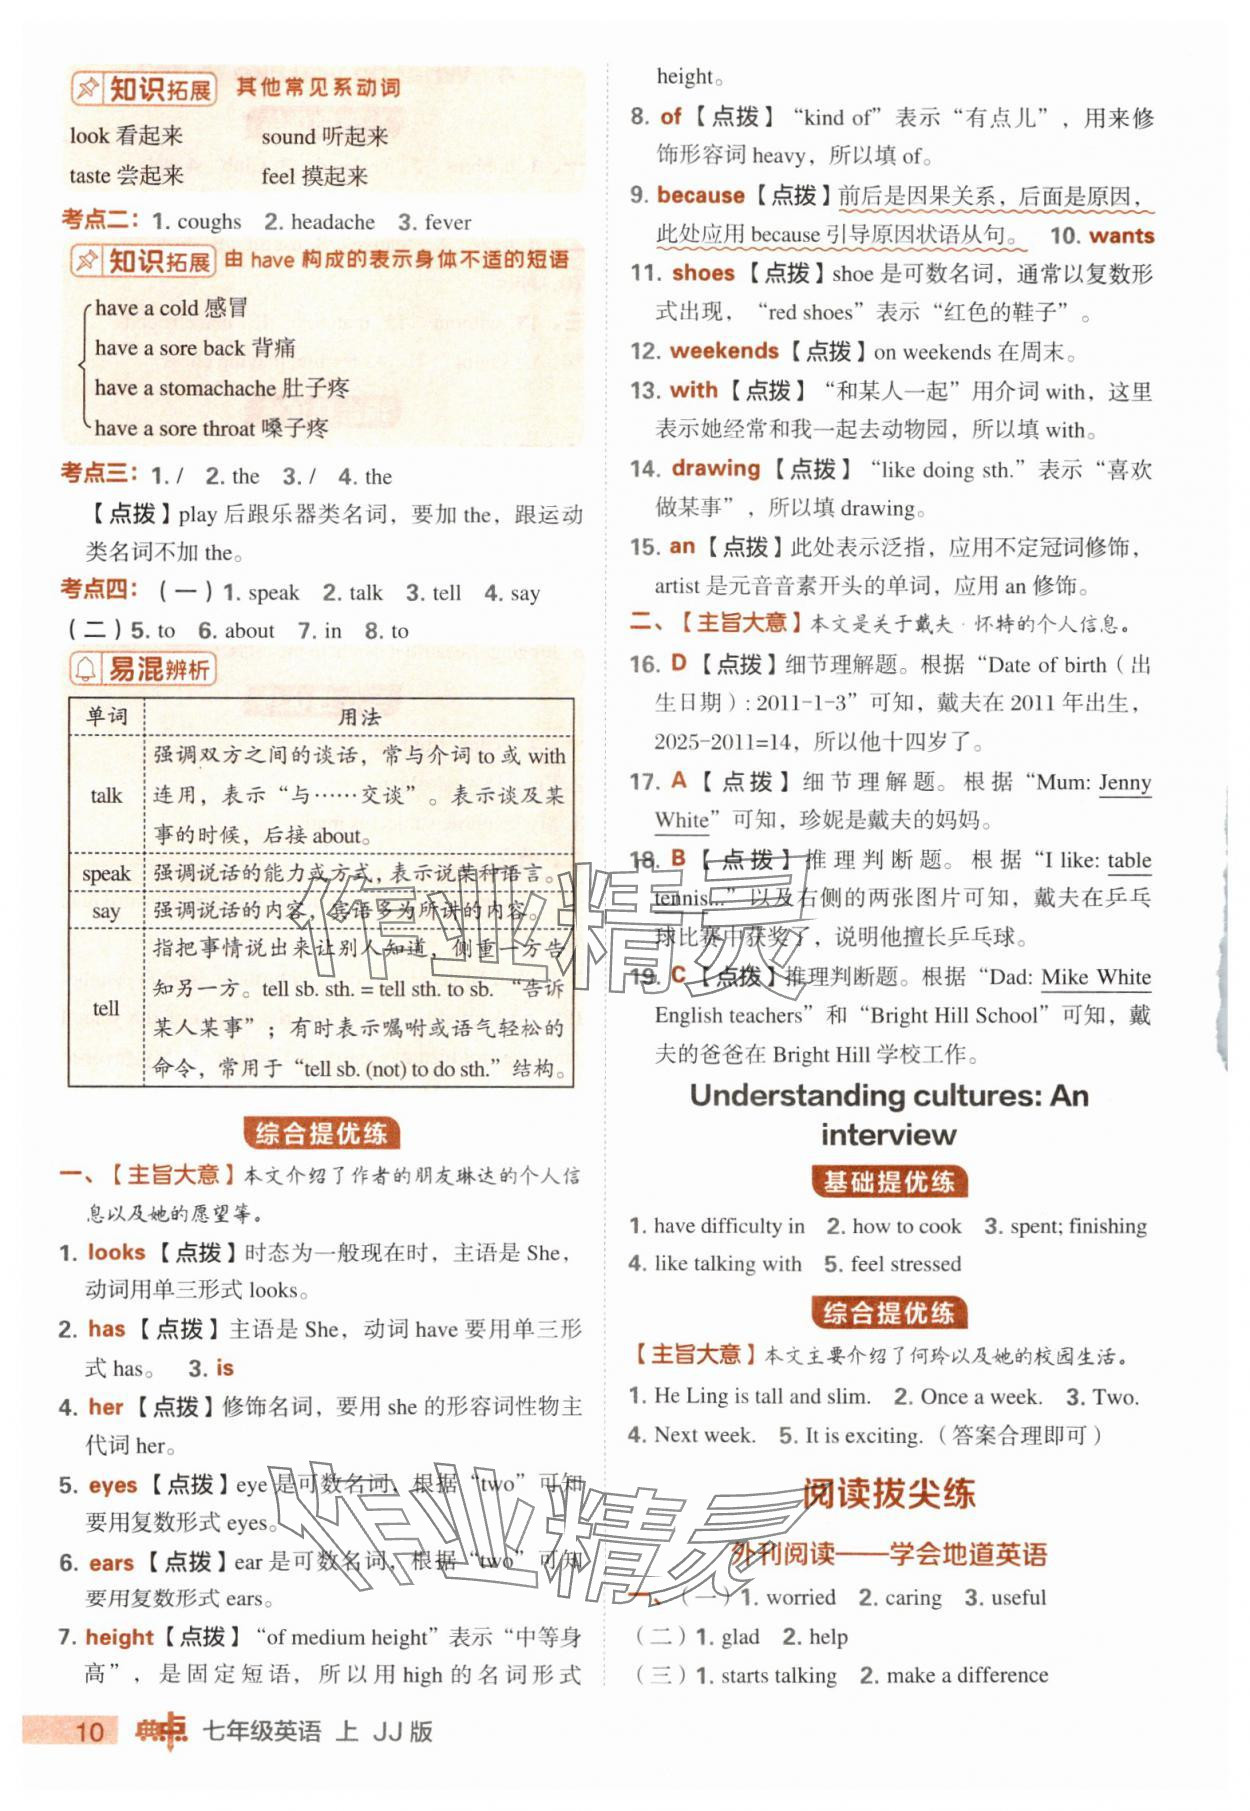 知识拓展 其他常见系动词
look 看起来 sound 听起来
taste 尝起来 feel 摸起来
考点二：1. coughs 2. headache 3. fever
知识拓展 由 have 构成的表示身体不适的短语
have a cold 感冒
have a sore back 背痛
have a stomachache 肚子疼
have a sore throat 嗓子疼
考点三：1. / 2. the 3. / 4. the
【点拨】play 后跟乐器类名词，要加 the，跟运动
类名词不加 the。
考点四：（一）1. speak 2. talk 3. tell 4. say
（二）5. to 6. about 7. in 8. to
易混辨析
单词 用法
talk 强调双方之间的谈话，常与介词 to 或 with
连用，表示“与……交谈”。表示谈及某
事的时候，后接 about。
speak 强调说话的能力或方式，表示说某种语言。
say 强调说话的内容，宾语多为所讲的内容。
tell 指把事情说出来让别人知道，侧重一方告
知另一方。tell sb. sth. = tell sth. to sb. “告诉
某人某事”；有时表示嘱咐或语气轻松的
命令，常用于“tell sb. (not) to do sth.”结构。
综合提优练
一、【主旨大意】本文介绍了作者的朋友琳达的个人信
息以及她的愿望等。
1. looks【点拨】时态为一般现在时，主语是 She，
动词用单三形式 looks。
2. has【点拨】主语是 She，动词 have 要用单三形
式 has。 3. is
4. her【点拨】修饰名词，要用 she 的形容词性物主
代词 her。
5. eyes【点拨】eye 是可数名词，根据“two”可知
要用复数形式 eyes。
6. ears【点拨】ear 是可数名词，根据“two”可知
要用复数形式 ears。
7. height【点拨】“of medium height”表示“中等身
高”，是固定短语，所以用 high 的名词形式
height。
8. of【点拨】“kind of”表示“有点儿”，用来修
饰形容词 heavy，所以填 of。
9. because【点拨】前后是因果关系，后面是原因，
此处应用 because 引导原因状语从句。 10. wants
11. shoes【点拨】shoe 是可数名词，通常以复数形
式出现，“red shoes”表示“红色的鞋子”。
12. weekends【点拨】on weekends 在周末。
13. with【点拨】“和某人一起”用介词 with，这里
表示她经常和我一起去动物园，所以填 with。
14. drawing【点拨】“like doing sth.”表示“喜欢
做某事”，所以填 drawing。
15. an【点拨】此处表示泛指，应用不定冠词修饰，
artist 是元音音素开头的单词，应用 an 修饰。
二、【主旨大意】本文是关于戴夫·怀特的个人信息。
16. D【点拨】细节理解题。根据“Date of birth（出
生日期）: 2011-1-3”可知，戴夫在 2011 年出生，
2025-2011=14，所以他十四岁了。
17. A【点拨】细节理解题。根据“Mum: Jenny
White”可知，珍妮是戴夫的妈妈。
18. B【点拨】推理判断题。根据“I like: table
tennis...”以及右侧的两张图片可知，戴夫在乒乓
球比赛中获奖了，说明他擅长乒乓球。
19. C【点拨】推理判断题。根据“Dad: Mike White
English teachers”和“Bright Hill School”可知，戴
夫的爸爸在 Bright Hill 学校工作。
Understanding cultures: An
interview
基础提优练
1. have difficulty in 2. how to cook 3. spent; finishing
4. like talking with 5. feel stressed
综合提优练
【主旨大意】本文主要介绍了何玲以及她的校园生活。
1. He Ling is tall and slim. 2. Once a week. 3. Two.
4. Next week. 5. It is exciting.（答案合理即可）
阅读拔尖练
外刊阅读——学会地道英语
一、（一）1. worried 2. caring 3. useful
（二）1. glad 2. help
（三）1. starts talking 2. make a difference
10 典中点 七年级英语 上 JJ 版
作业精灵
作业精灵